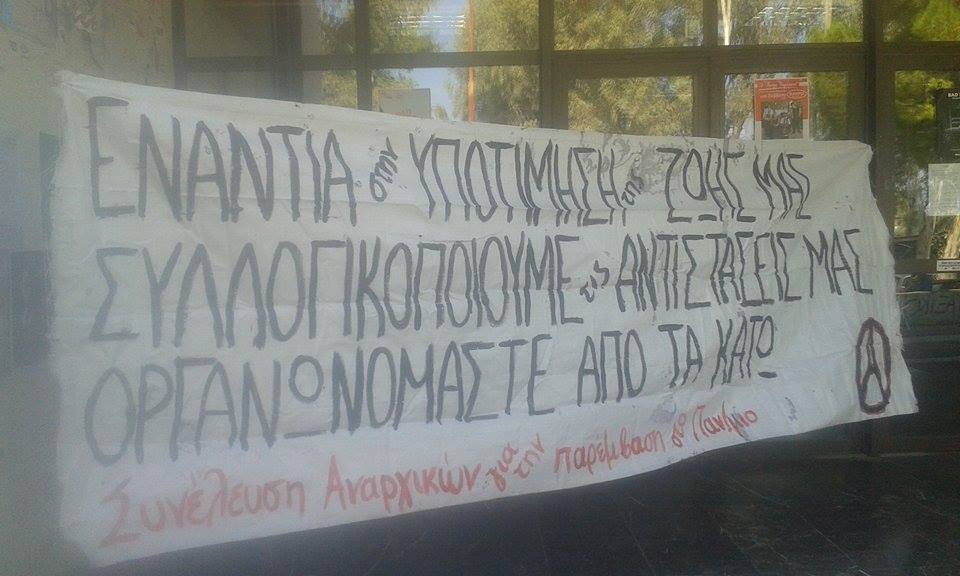 ΕΝΑΝΤΙΑ στην ΥΠΟΤΙΜΗΣΗ της ΖΩΗΣ ΜΑΣ
ΣΥΛΛΟΓΙΚΟΠΟΙΟΥΜΕ τις ΑΝΤΙΣΤΑΣΕΙΣ ΜΑΣ
ΟΡΓΑΝΩΝΟΜΑΣΤΕ ΑΠΟ ΤΑ ΚΑΤΩ
Συνέλευση Αναρχικών για την παρέμβαση στο Παν/μιο
BAD